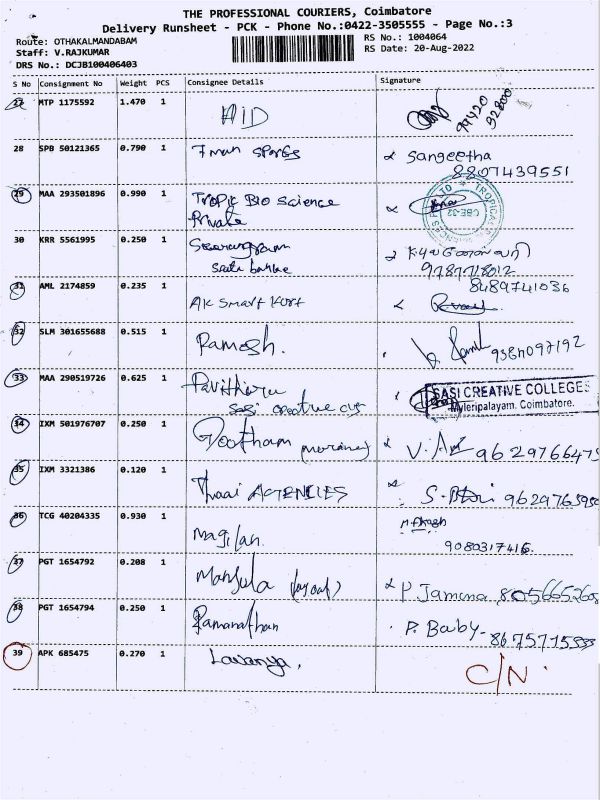 THE PROFESSIONAL COURIERS, Coimbatore
Delivery Runsheet - PCK - Phone No.:0422-3505555 - Page No.:3
Route: OTHAKALMANDABAM
Staff: V.RAJKUMAR
DRS No.: DCJB100406403
RS No.: 1004064
RS Date: 20-Aug-2022
S No Consignment No Weight PCS Consignee Details Signature
27 MTP 1175592 1.470 1 AID 99420
32800
28 SPB 50121365 0.790 1 7 man sports Sangeetha
8807439551
29 MAA 293501896 0.990 1 Tropic Bio Science
Private
CBE-32
30 KRR 5561995 0.250 1
9787718012
31 AML 2174859 0.235 1 AK Smart Kort 8489741036
32 SLM 301655688 0.515 1 Ramesh.
33 MAA 290519726 0.625 1 Pavithra
Sasi creative clg
SASI CREATIVE COLLEGES
Myleripalayam. Coimbatore.
34 IXM 501976707 0.250 1 Gootham V.
35 IXM 3321386 0.120 1 Thaai AGENCIES
36 TCG 40204335 0.930 1 Magilan.
9080317416.
37 PGT 1654792 0.208 1 Manjula P. Jamuna
38 PGT 1654794 0.250 1 Ramanathan P. Baby-
39 APK 685475 0.270 1 Lavanya. C/N.